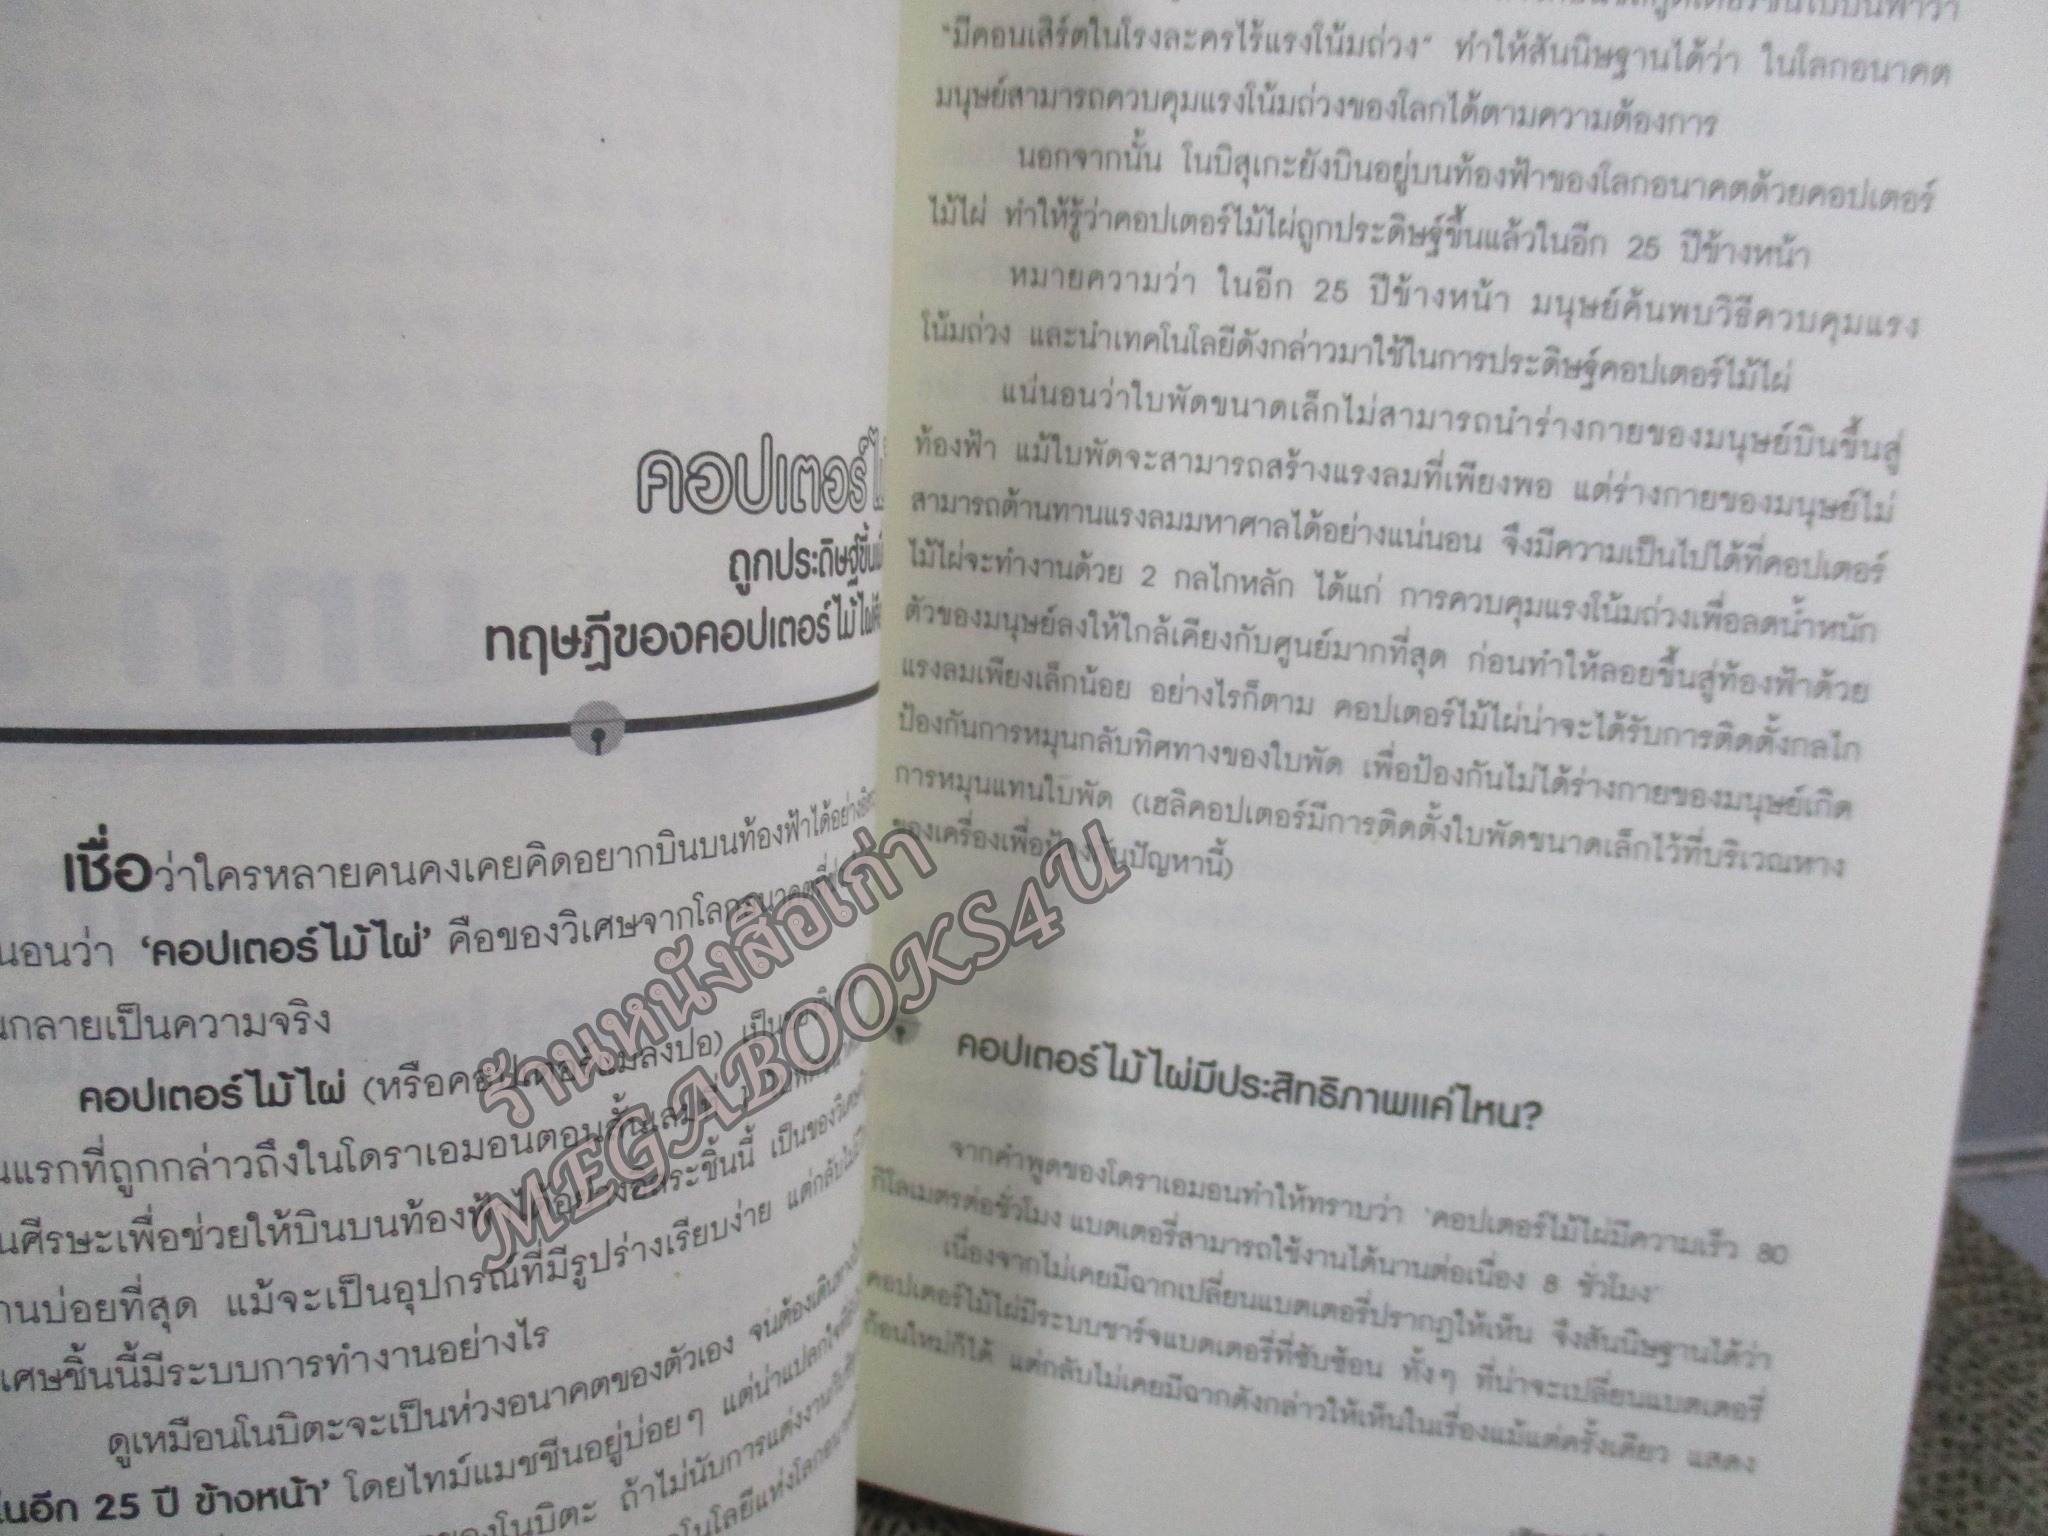 คอปเตอร์ไม้
ถูกประดิษฐ์ขึ้น
ทฤษฎีของคอปเตอร์ไม้ไผ่
เชื่อว่าใครหลายคนคงเคยคิดอยากบินบนท้องฟ้าได้อย่าง
นอนว่า ‘คอปเตอร์ไม้ไผ่’ คือของวิเศษจากโลกอนาคตที่
กลายเป็นความจริง
คอปเตอร์ไม้ไผ่ (หรือคอปเตอร์แมลงปอ) เป็น
แรกที่ถูกกล่าวถึงในโดราเอมอนตอนสั้น
ศีรษะเพื่อช่วยให้บินบนท้องฟ้าได้อย่างอิสระชิ้นนี้ เป็นของวิเศษ
านบ่อยที่สุด แม้จะเป็นอุปกรณ์ที่มีรูปร่างเรียบง่าย แต่กลับไม่มี
เศษชิ้นนี้มีระบบการทำงานอย่างไร
ดูเหมือนโนบิตะจะเป็นห่วงอนาคตของตัวเอง จนต้องเดินทาง
ในอีก 25 ปี ข้างหน้า’ โดยไทม์แมชชีนอยู่บ่อยๆ แต่น่าแปลกใจที่
ของโนบิตะ ถ้าไม่นับการแต่งงานกับ
โนโลยีแห่งโลกอนาคต
“มีคอนเสิร์ตในโรงละครไร้แรงโน้มถ่วง” ทำให้สันนิษฐานได้ว่า ในโลกอนาคต
มนุษย์สามารถควบคุมแรงโน้มถ่วงของโลกได้ตามความต้องการ
นอกจากนั้น โนบิสุเกะยังบินอยู่บนท้องฟ้าของโลกอนาคตด้วยคอปเตอร์
ไม้ไผ่ ทำให้รู้ว่าคอปเตอร์ไม้ไผ่ถูกประดิษฐ์ขึ้นแล้วในอีก 25 ปีข้างหน้า
หมายความว่า ในอีก 25 ปีข้างหน้า มนุษย์ค้นพบวิธีควบคุมแรง
โน้มถ่วง และนำเทคโนโลยีดังกล่าวมาใช้ในการประดิษฐ์คอปเตอร์ไม้ไผ่
แน่นอนว่าใบพัดขนาดเล็กไม่สามารถนำร่างกายของมนุษย์บินขึ้นสู่
ท้องฟ้า แม้ใบพัดจะสามารถสร้างแรงลมที่เพียงพอ แต่ร่างกายของมนุษย์ไม่
สามารถต้านทานแรงลมมหาศาลได้อย่างแน่นอน จึงมีความเป็นไปได้ที่คอปเตอร์
ไม้ไผ่จะทำงานด้วย 2 กลไกหลัก ได้แก่ การควบคุมแรงโน้มถ่วงเพื่อลดน้ำหนัก
ตัวของมนุษย์ลงให้ใกล้เคียงกับศูนย์มากที่สุด ก่อนทำให้ลอยขึ้นสู่ท้องฟ้าด้วย
แรงลมเพียงเล็กน้อย อย่างไรก็ตาม คอปเตอร์ไม้ไผ่น่าจะได้รับการติดตั้งกลไก
ป้องกันการหมุนกลับทิศทางของใบพัด เพื่อป้องกันไม่ได้ร่างกายของมนุษย์เกิด
การหมุนแทนใบพัด (เฮลิคอปเตอร์มีการติดตั้งใบพัดขนาดเล็กไว้ที่บริเวณหาง
ของเครื่องเพื่อป้องกันปัญหานี้)
คอปเตอร์ไม้ไผ่มีประสิทธิภาพแค่ไหน?
จากคำพูดของโดราเอมอนทำให้ทราบว่า ‘คอปเตอร์ไม้ไผ่มีความเร็ว 80
กิโลเมตรต่อชั่วโมง แบตเตอรี่สามารถใช้งานได้นานต่อเนื่อง 8 ชั่วโมง’
เนื่องจากไม่เคยมีฉากเปลี่ยนแบตเตอรี่ปรากฏให้เห็น จึงสันนิษฐานได้ว่า
คอปเตอร์ไม้ไผ่มีระบบชาร์จแบตเตอรี่ที่ซับซ้อน ทั้งๆ ที่น่าจะเปลี่ยนแบตเตอรี่
ก้อนใหม่ก็ได้ แต่กลับไม่เคยมีฉากดังกล่าวให้เห็นในเรื่องแม้แต่ครั้งเดียว แสดง
ร้านหนังสือเก่า
MEGABOOKS4U